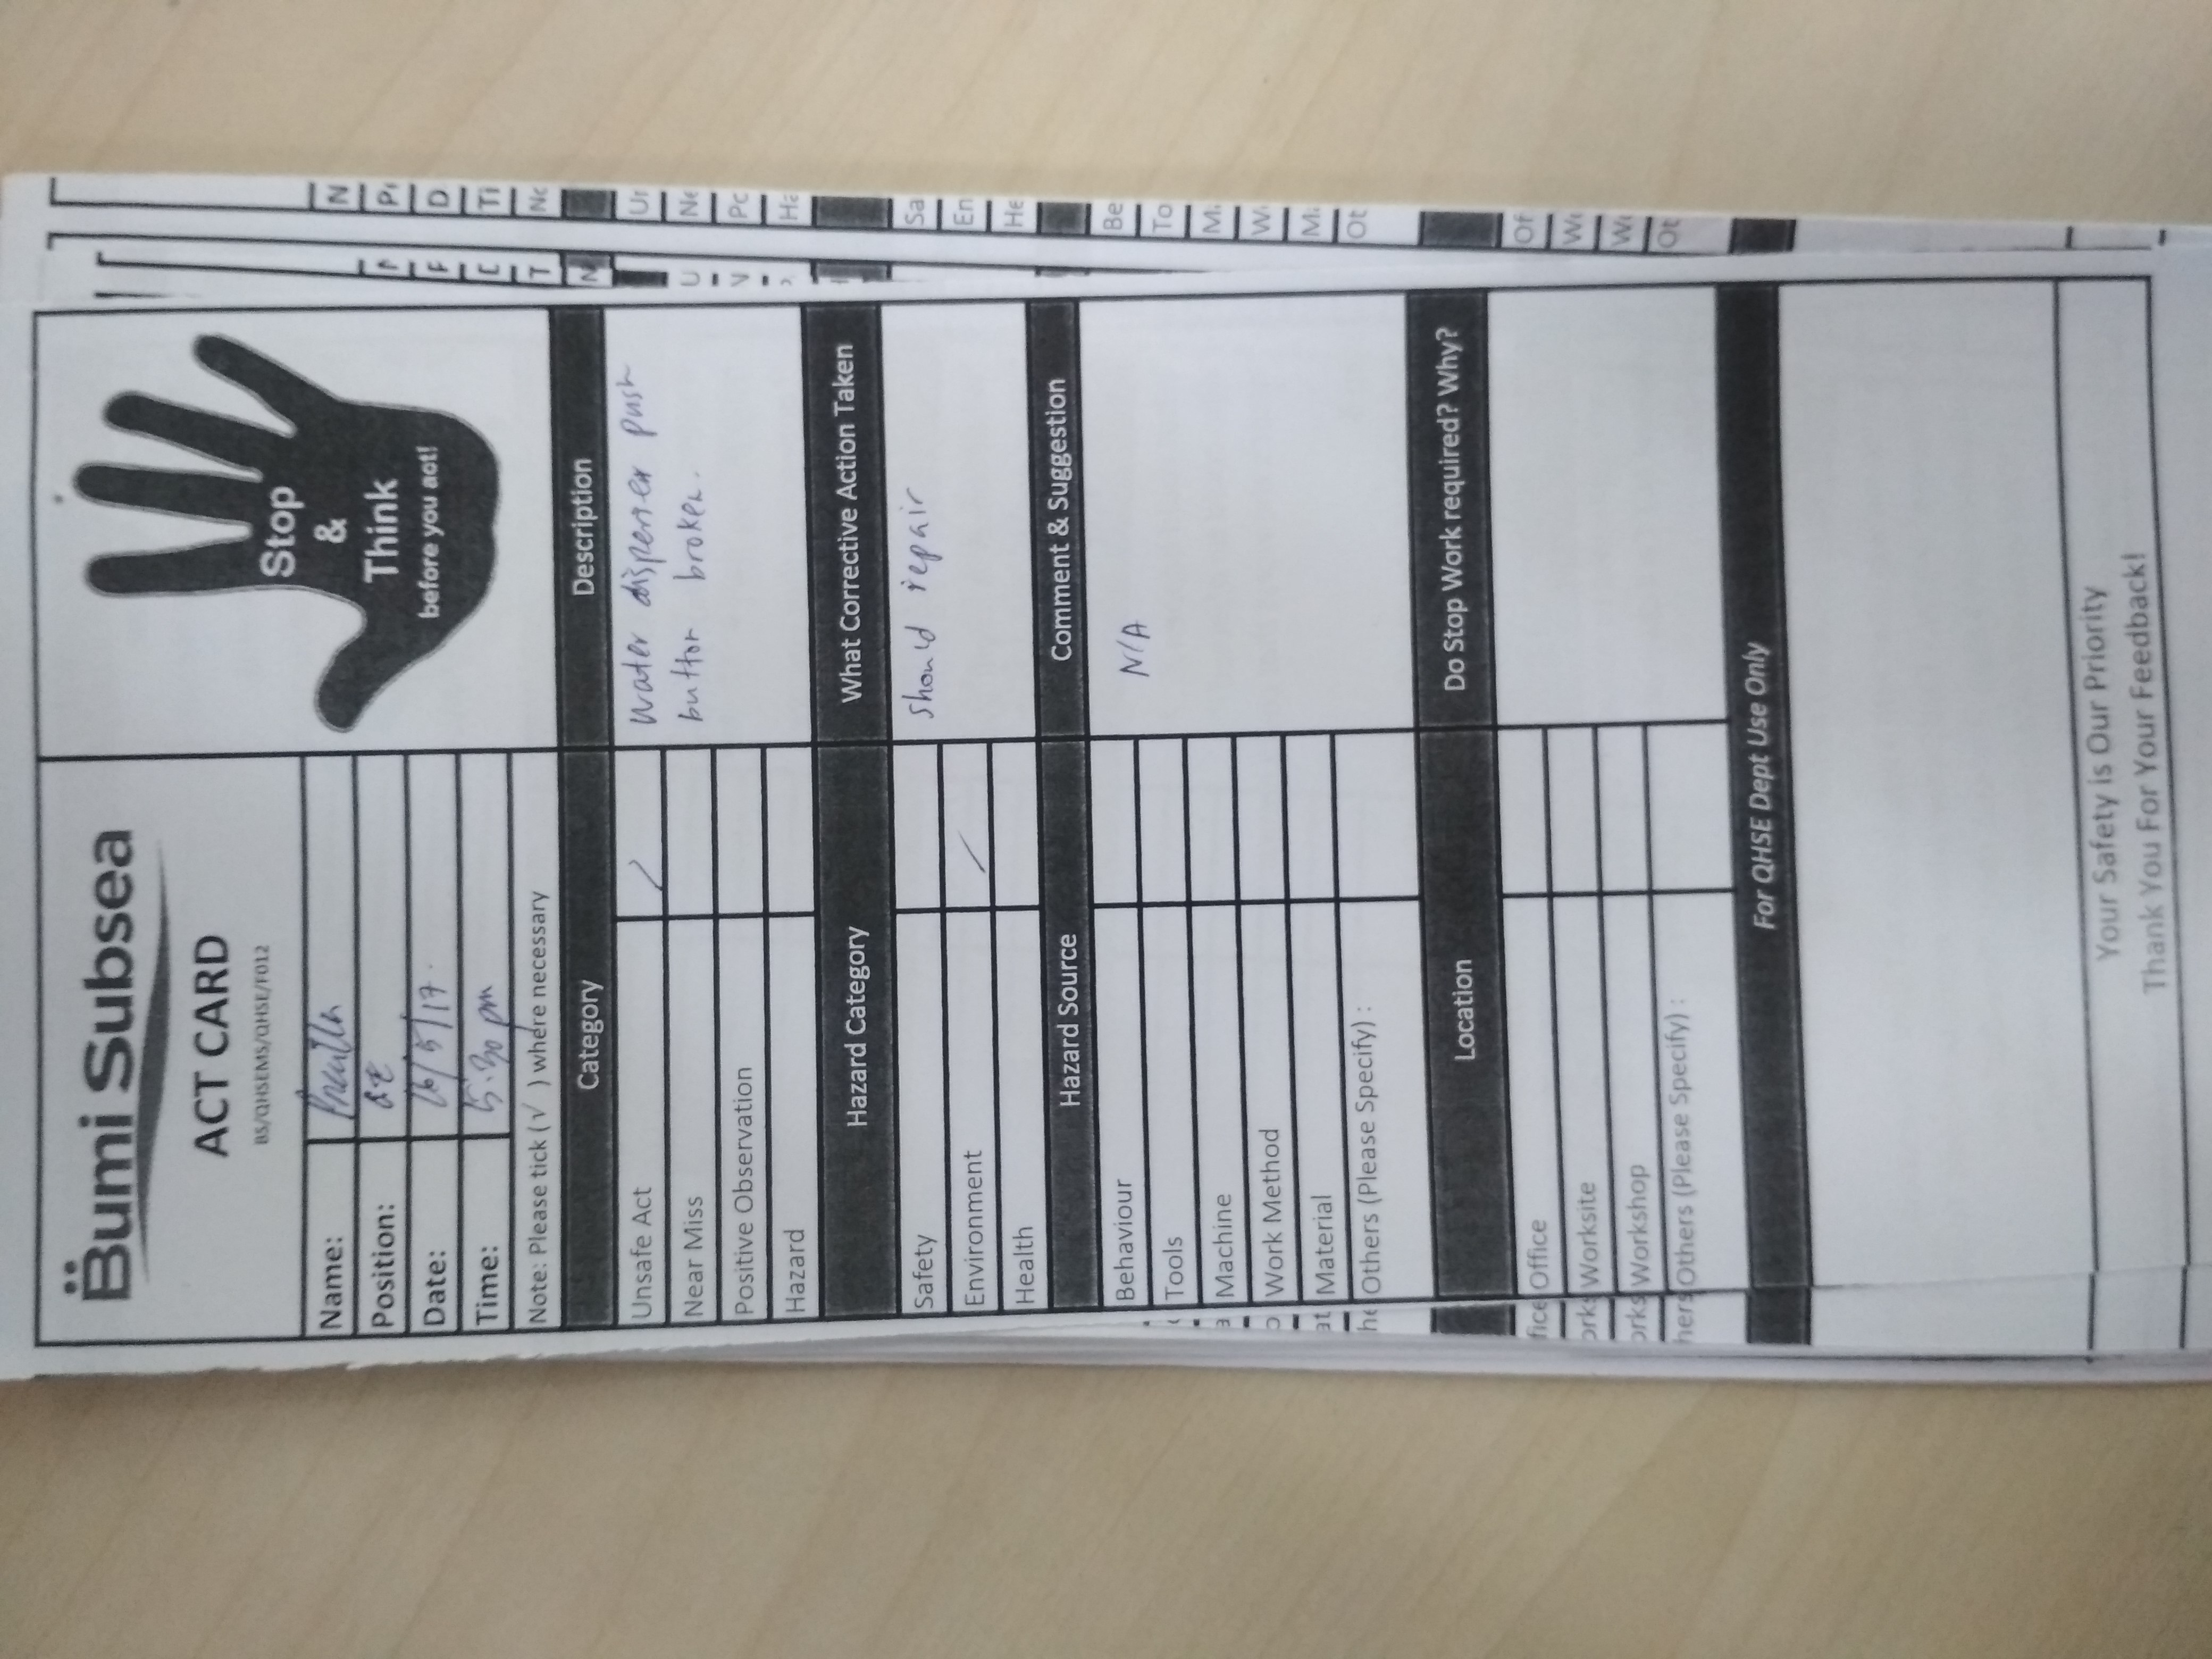 Bumi Subsea
ACT CARD
BS/QHSEMS/QHSE/F012
Stop
&
Think
before you act!
Name:
Position:
Date: 16/5/17.
Time: 5.30 pm
Note: Please tick (√ ) where necessary
Category Description
Unsafe Act ✓ Water dispenser push
Near Miss button broken.
Positive Observation
Hazard
Hazard Category What Corrective Action Taken
Safety should repair
Environment /
Health
Hazard Source Comment & Suggestion
Behaviour N/A
Tools
Machine
Work Method
Material
Others (Please Specify) :
Location Do Stop Work required? Why?
Office
Worksite
Workshop
Others (Please Specify) :
For QHSE Dept Use Only
Your Safety is Our Priority
Thank You For Your Feedback!